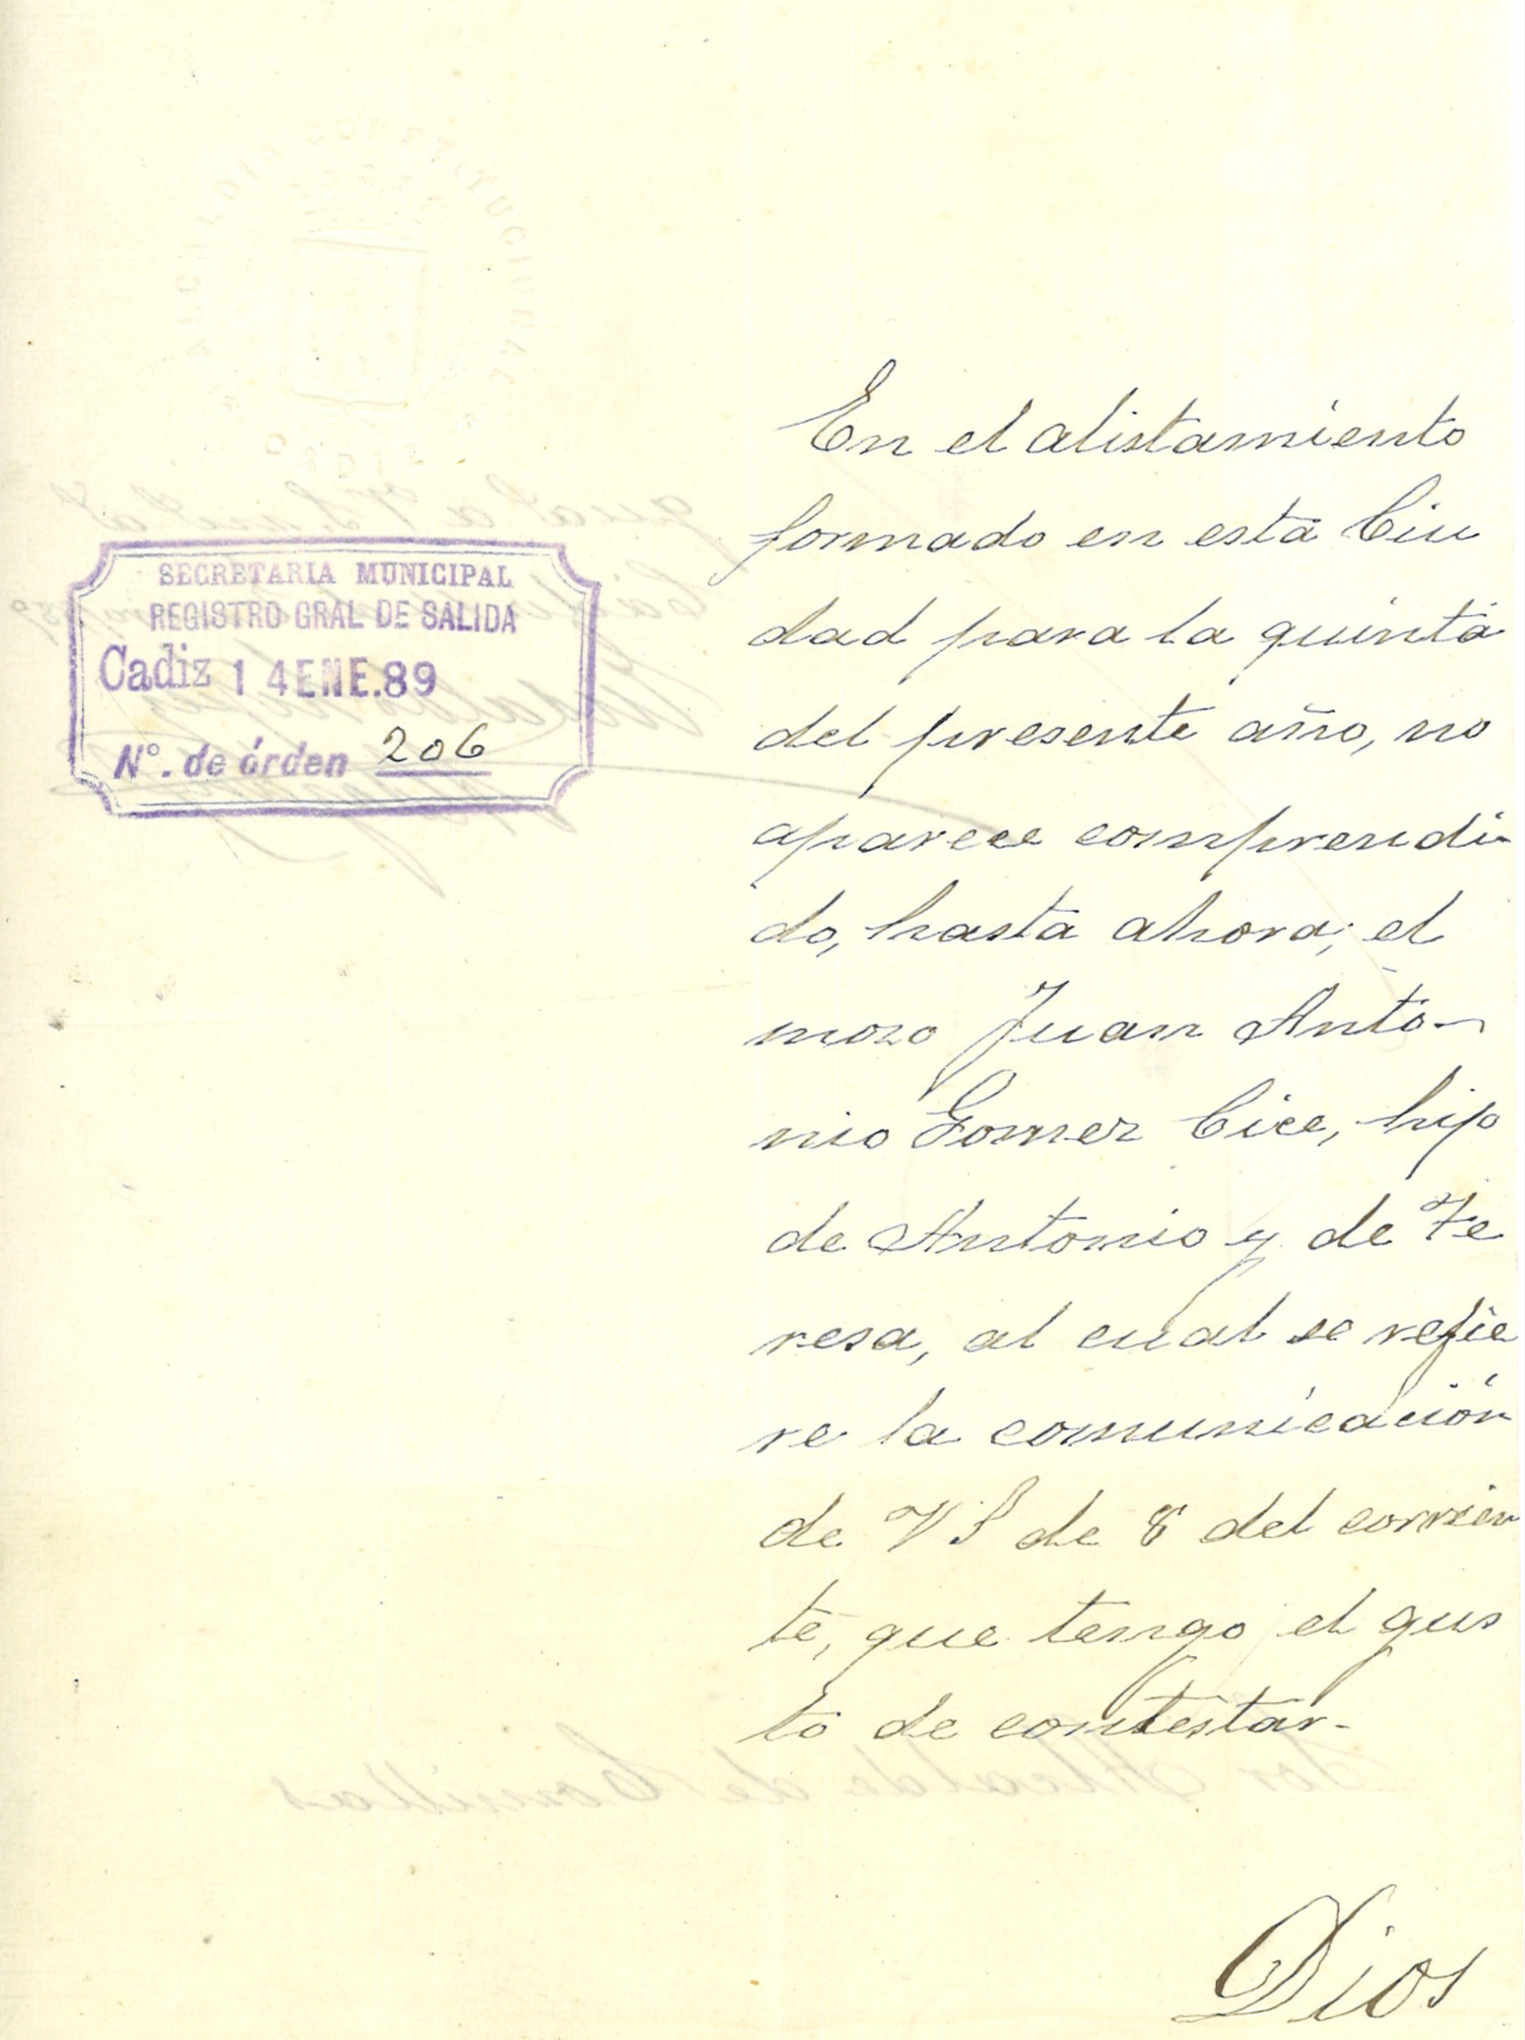 SECRETARIA MUNICIPAL
REGISTRO GRAL DE SALIDA
Cadiz 14 ENE. 89
Nº. de órden 206
En el alistamiento
formado en esta Ciu
dad para la quinta
del presente año, no
aparece comprendi-
do, hasta ahora, el
mozo Juan Anto-
nio Gomez Cice, hijo
de Antonio y de Te
resa, al cual se refie
re la comunicación
de V S de 8 del corrien
te, que tengo el gus
to de contestar.
Dios
Sor Alcalde de Comillas